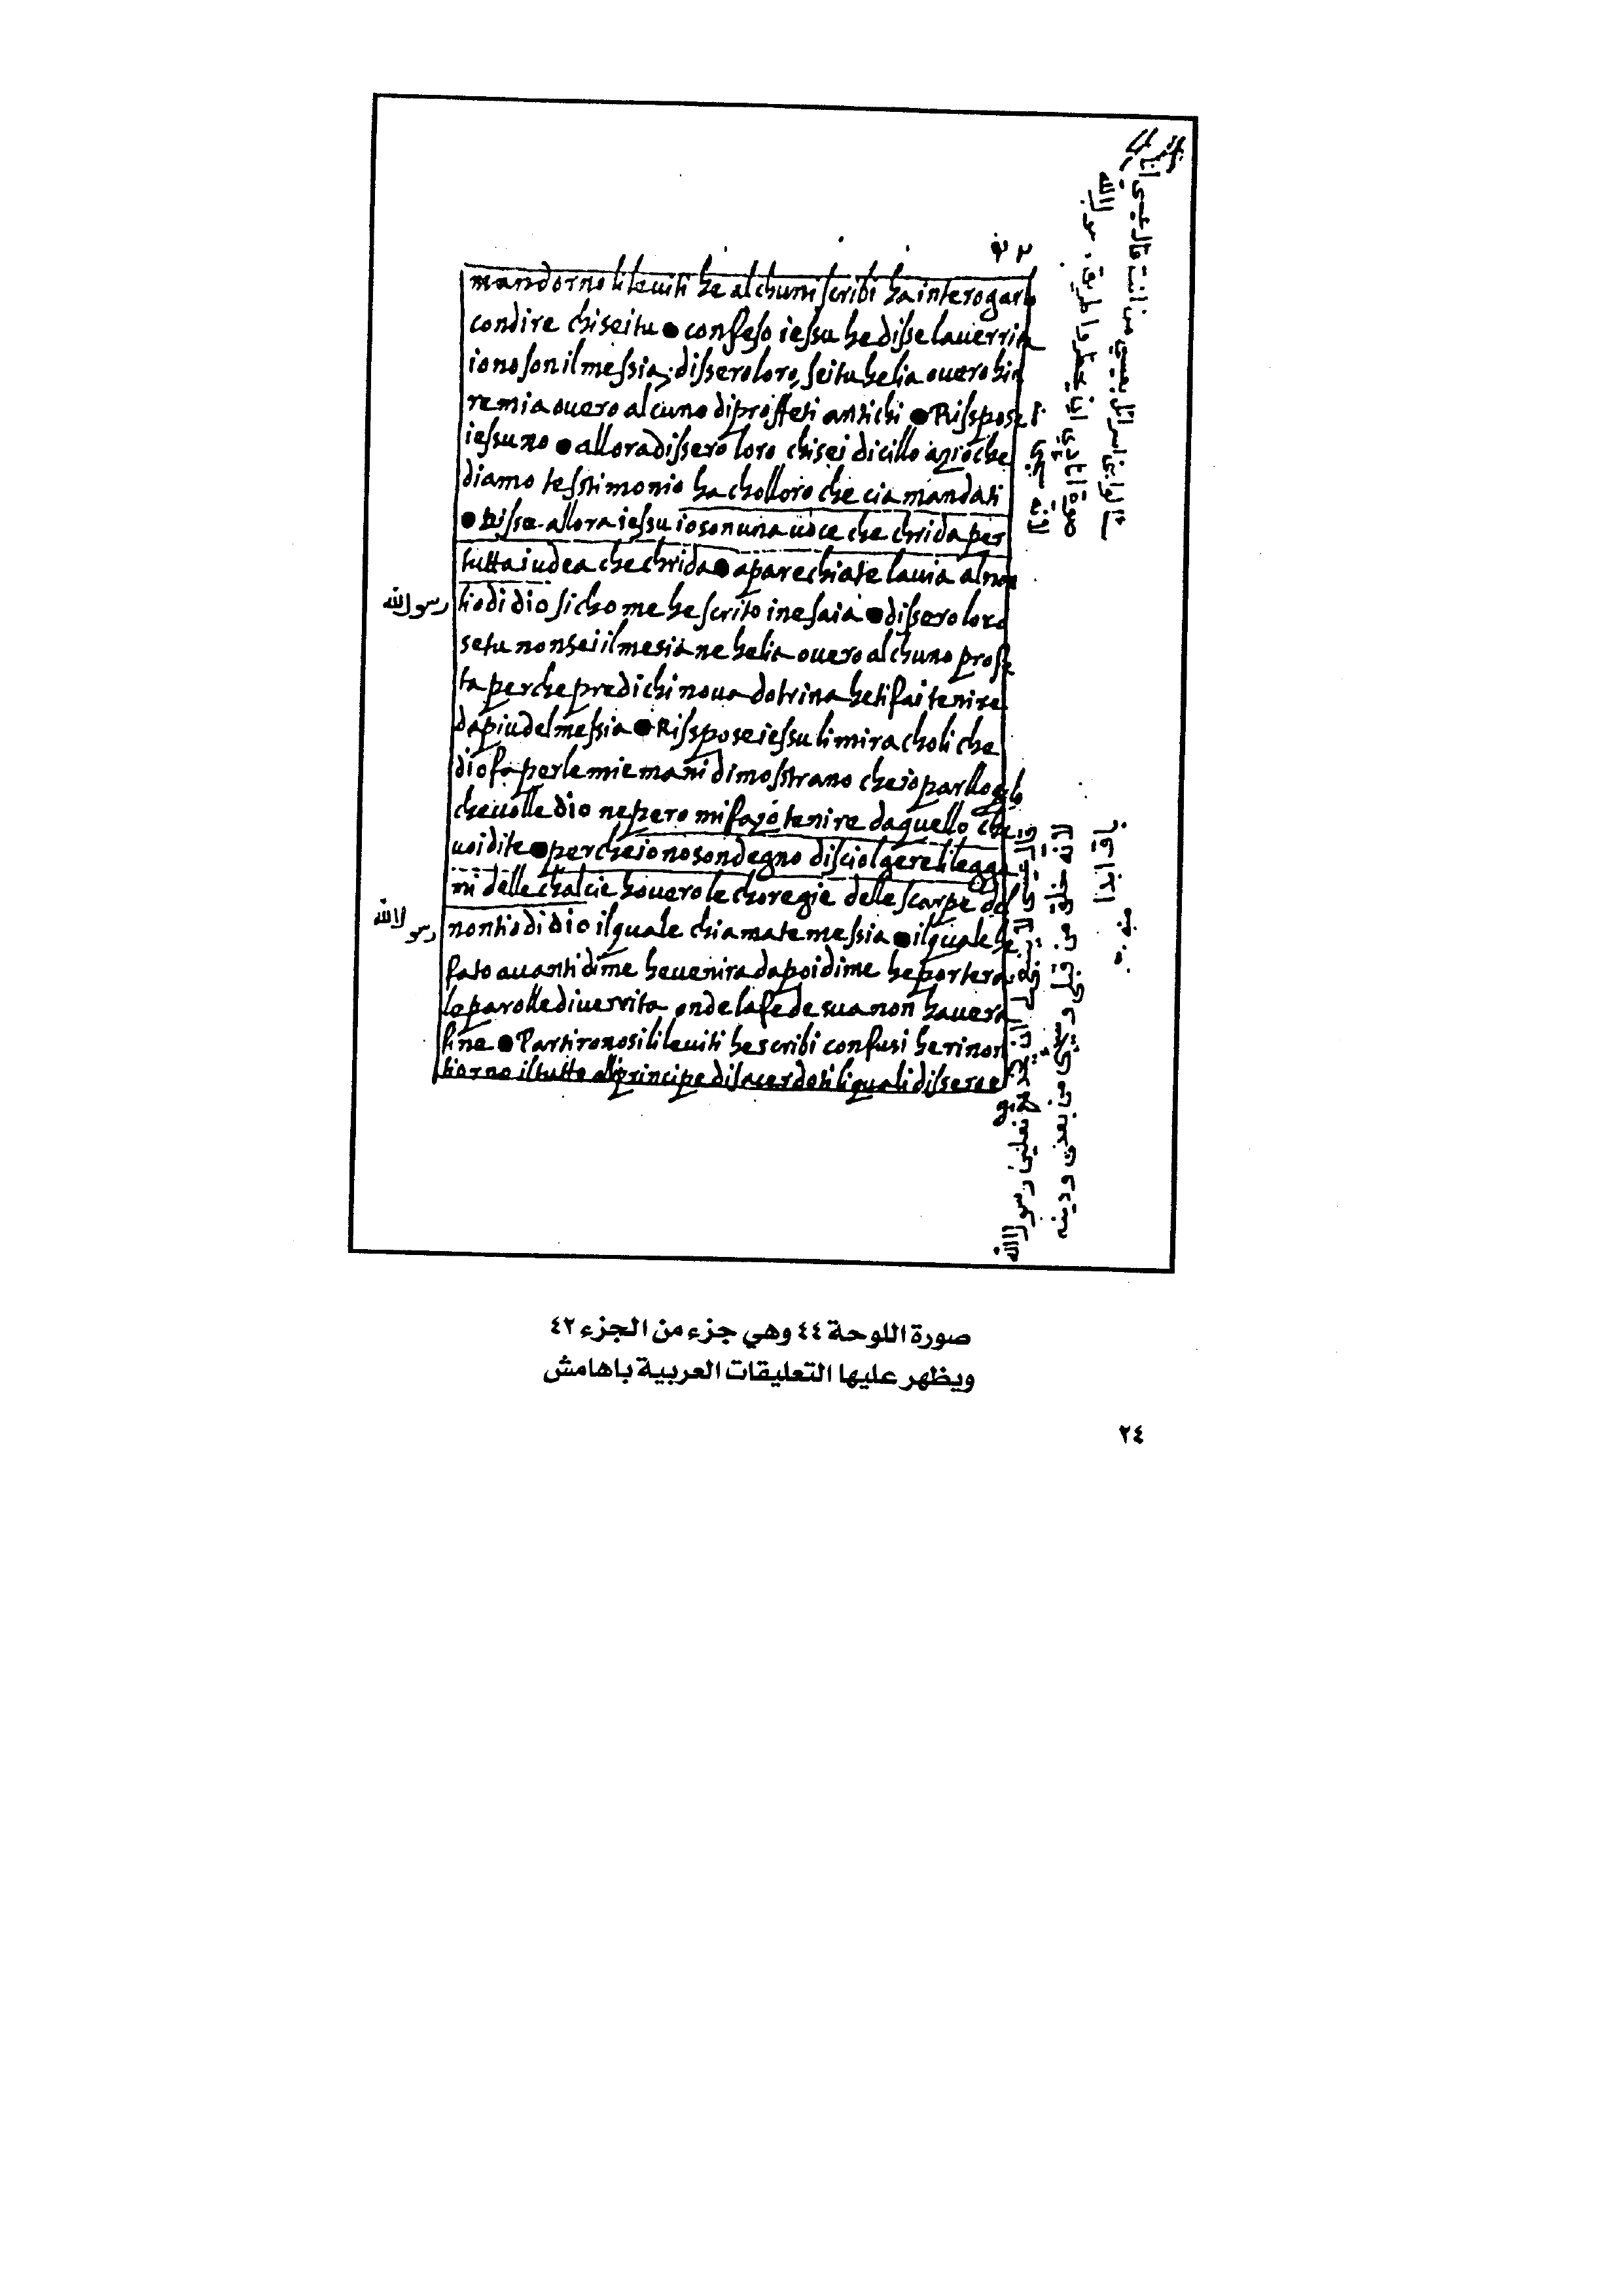 ٤٢
mandorno li leuiti he alchuni scribi ha interogarlo
condire chi sei tu ● confeso iessu he disse la uerrita
io no son il messia; dissero loro, sei tu helia ouero hie
remia ouero alcuno di proffeti antichi ● Risspose
iessu no ● allora dissero loro chi sei dicillo azio che
diamo tesstimonio ha cholloro che cia mandati
● Disse allora iessu io son una uoce che chrida per
tutta iudea che chrida ● aparechiate la uia al non
رسول الله
tio di dio sichome he scrito in esaia ● dissero loro
se tu non sei il mesia ne helia ouero alchuno proffe
ta perche predichi noua dotrina he ti fai tenire
da piu del messia ● Risspose iessu li miracholi che
dio fa per le mie mani dimosstrano che io parllo quelo
che uolle dio ne pero mi fazo tenire da quello che
uoi dite ● perche io no son degno di sciolgere li legga
mi delle chalcie houero le choregie delle scarpe del
رسول الله
nontio di dio il quale chiamate messia ● il quale he
fato auanti di me he uenira da poi di me he portera
le parolle di uerrita onde la fede sua non hauera
fine ● Partironosi li leuiti he scribi confusi he rinon
tiorno il tutto alli principe di sacerdoti li quali dissero e
قال عيسى
رسول الله
لانه خلق من قبلي وسيجيء من بعدي ودينه
باقي ابدا
منه
صورة اللوحة ٤٤ وهي جزء من الجزء ٤٢
ويظهر عليها التعليقات العربية باهامش
٢٤